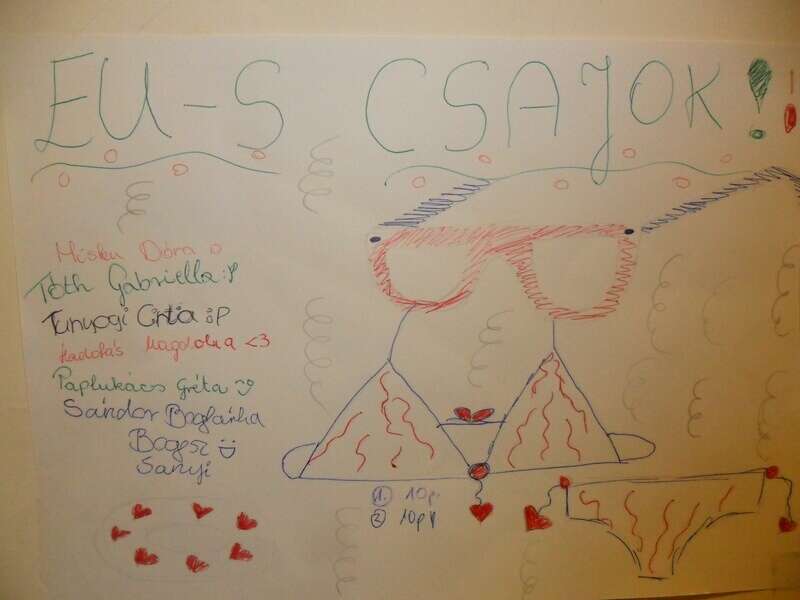 EU-S CSAJOK!!
Miska Dóra
Tóth Gabriella :P
Tunyogi Cirta :P
Magdolna <3
Paplukács Gréta
Sándor Boglárka
Bogesz
Sanyi
1. 10p.
2. 10p